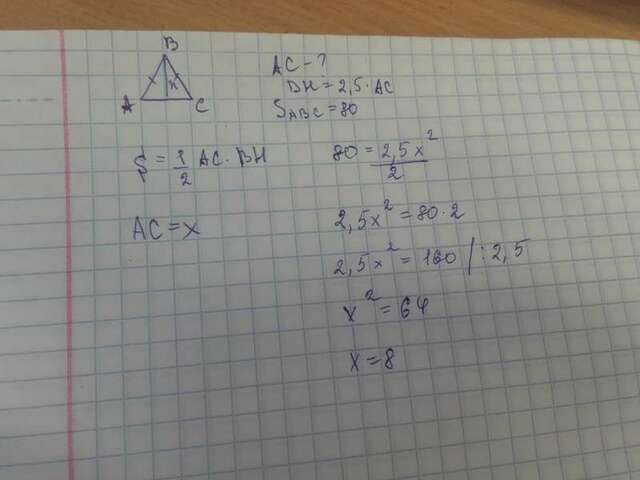 B
A H C
AC - ?
BH = 2,5 · AC
S_ABC = 80
S = 1/2 AC · BH
AC = x
80 = 2,5x²/2
2,5x² = 80 · 2
2,5x² = 160 | : 2,5
x² = 64
x = 8